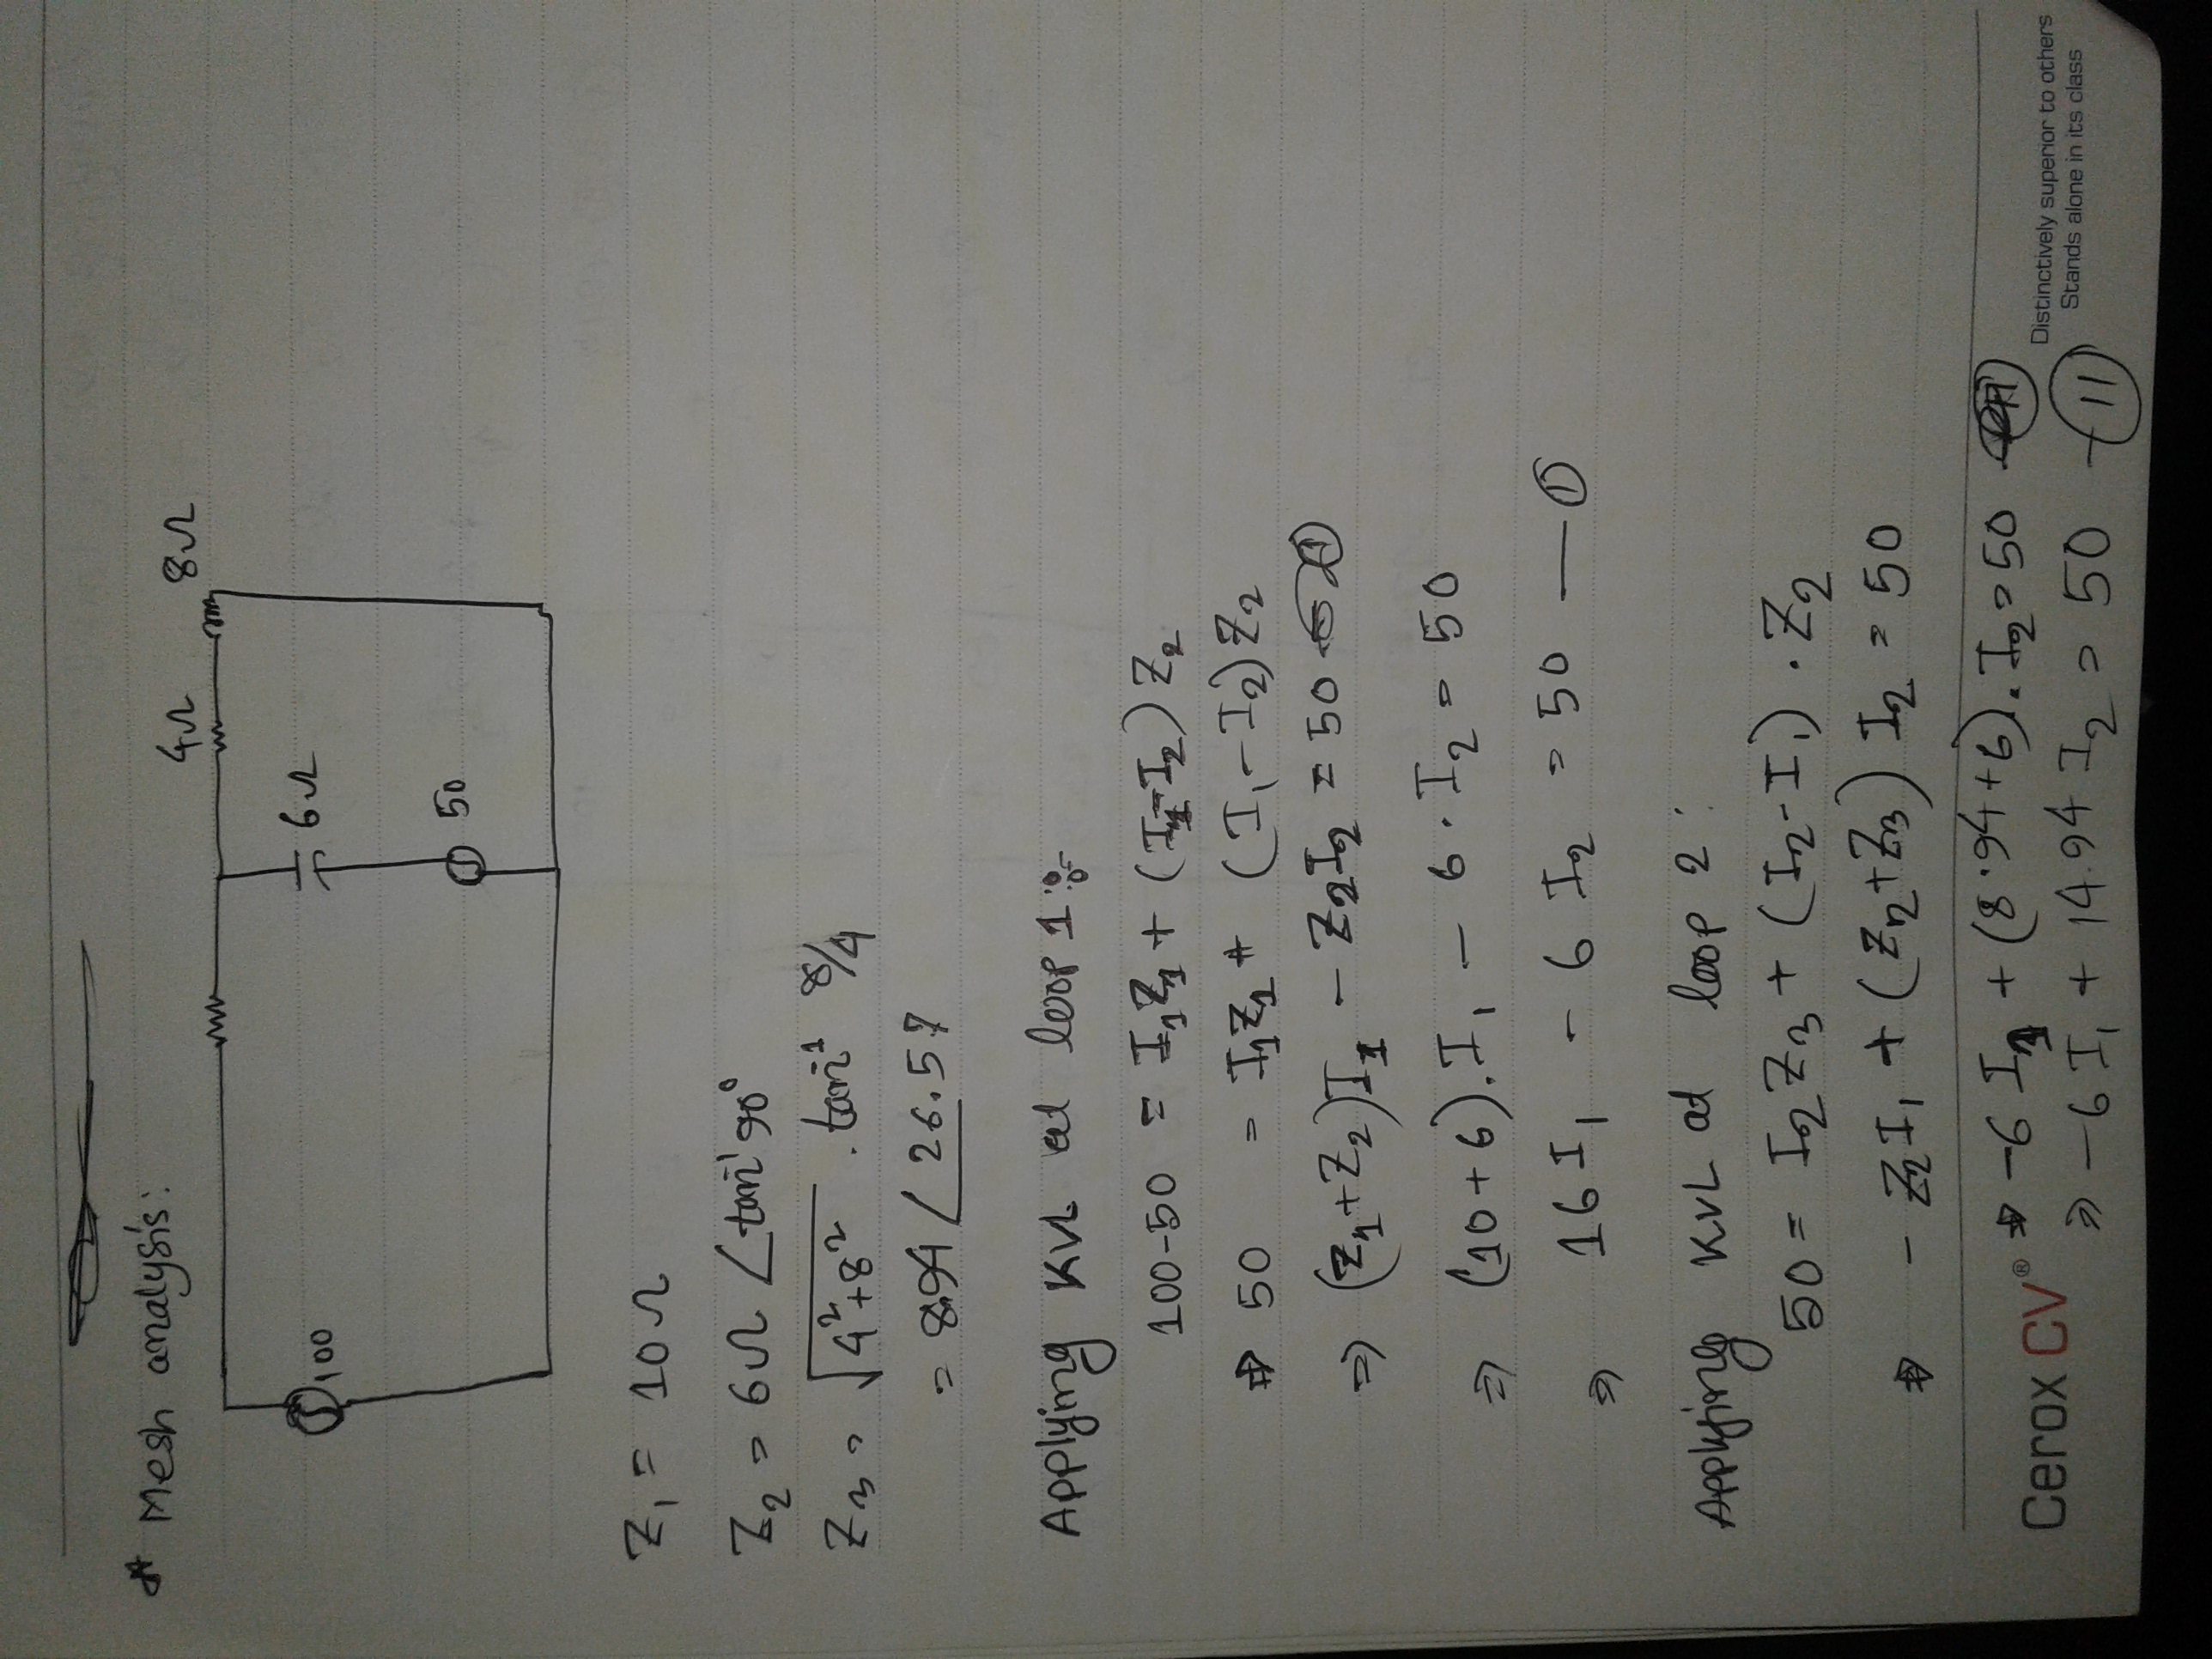 * Mesh analysis:
4Ω 8Ω
100
6Ω
50
Z₁ = 10Ω
Z₂ = 6Ω ∠tan⁻¹ 90°
Z₃ = √4²+8² . tan⁻¹ 8/4
= 8.94 ∠26.57
Applying KVL at loop 1:-
100-50 = I₁Z₁ + (I₁-I₂) Z₂
⇒ 50 = I₁Z₁ + (I₁-I₂) Z₂
⇒ (Z₁+Z₂)I₁ - Z₂I₂ = 50
⇒ (10+6).I₁ - 6.I₂ = 50
⇒ 16I₁ - 6 I₂ = 50 — ①
Applying KVL at loop 2:
50 = I₂Z₃ + (I₂-I₁).Z₂
⇒ - Z₂I₁ + (Z₂+Z₃) I₂ = 50
⇒ -6 I₁ + (8.94+6).I₂ = 50
⇒ -6 I₁ + 14.94 I₂ = 50 — (11)
Cerox CV®
Distinctively superior to others
Stands alone in its class